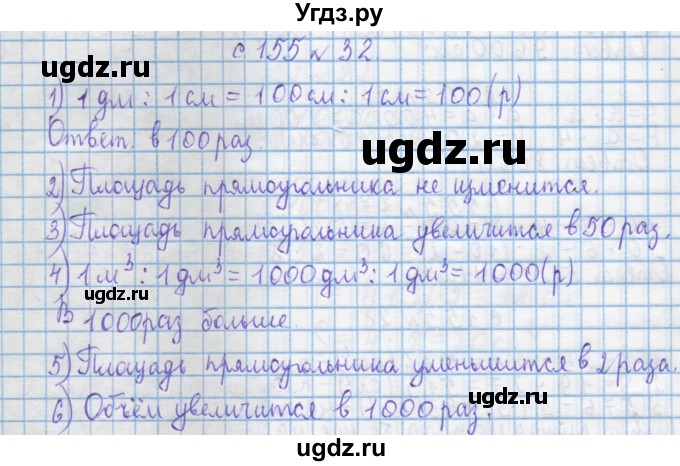 Угдз.ру
с 155 № 32
ugdz.ru
1) 1 дм : 1 см = 100 см : 1 см = 100 (р)
ugdz.ru
Ответ. в 100 раз.
2) Площадь прямоугольника не изменится.
3) Площадь прямоугольника увеличится в 50 раз.
ugdz.ru
4) 1 м³ : 1 дм³ = 1000 дм³ : 1 дм³ = 1000 (р)
ugdz.ru
В 1000 раз больше.
5) Площадь прямоугольника уменьшится в 2 раза.
ugdz.ru
6) Объём увеличится в 1000 раз.
ugdz.ru